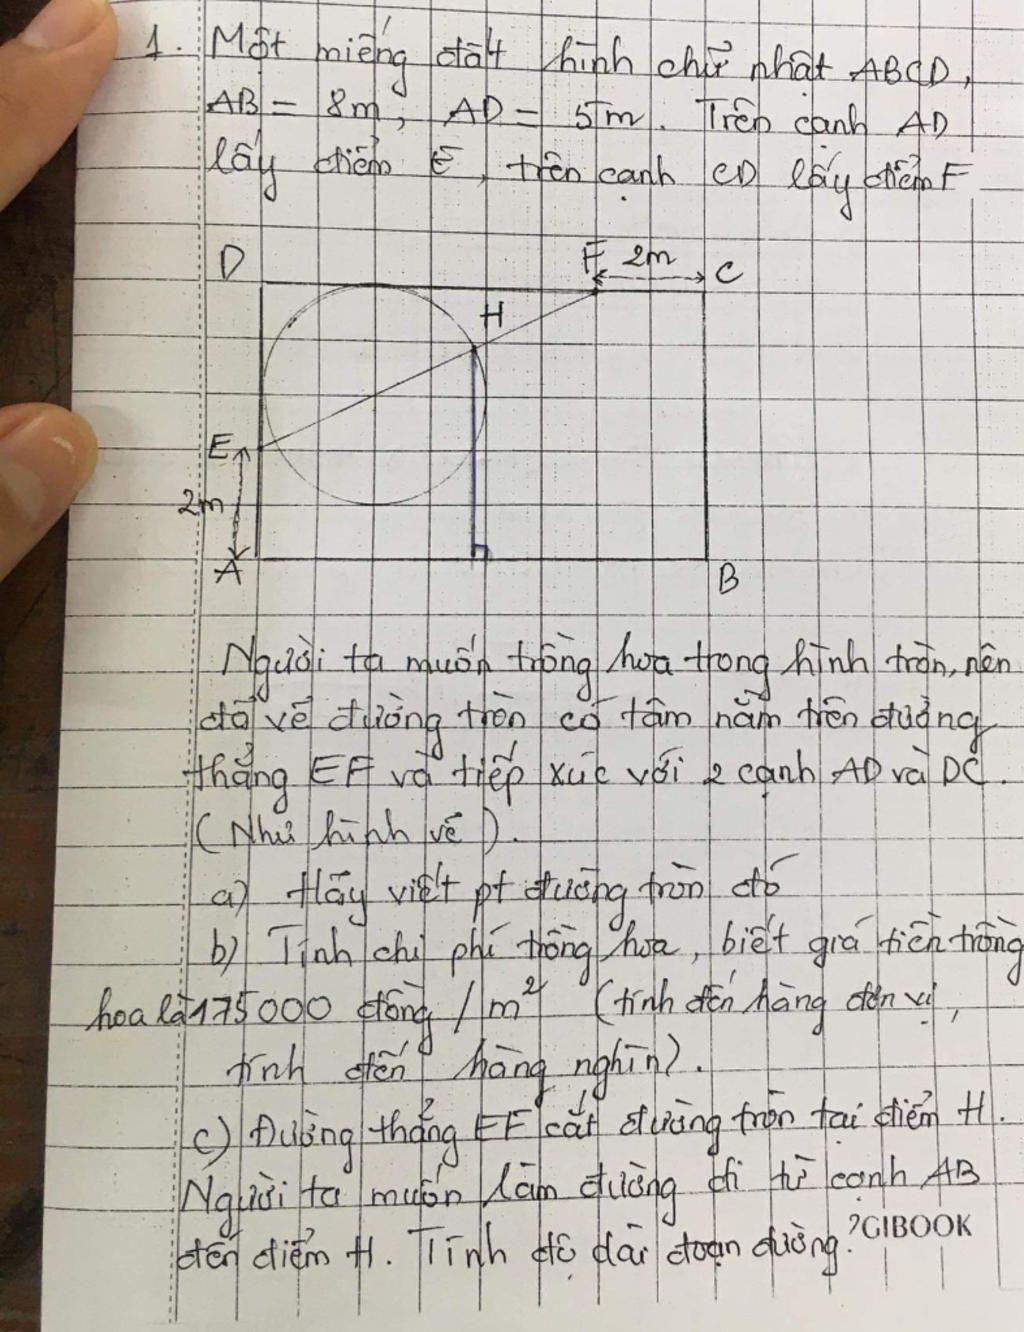 1. Một miếng đất hình chữ nhật ABCD,
AB = 8m, AD = 5m. Trên cạnh AD
lấy điểm E, trên cạnh CD lấy điểm F
D
F 2m C
H
E
2m
A
B
Người ta muốn trồng hoa trong hình tròn, nên
đã vẽ đường tròn có tâm nằm trên đường
thẳng EF và tiếp xúc với 2 cạnh AD và DC.
(Như hình vẽ).
a) Hãy viết pt đường tròn đó
b) Tính chi phí trồng hoa, biết giá tiền trồng
hoa là 175000 đồng /m² (tính đến hàng đơn vị,
tính đến hàng nghìn).
c) Đường thẳng EF cắt đường tròn tại điểm H.
Người ta muốn làm đường đi từ cạnh AB
đến điểm H. Tính độ dài đoạn đường?
GIBOOK